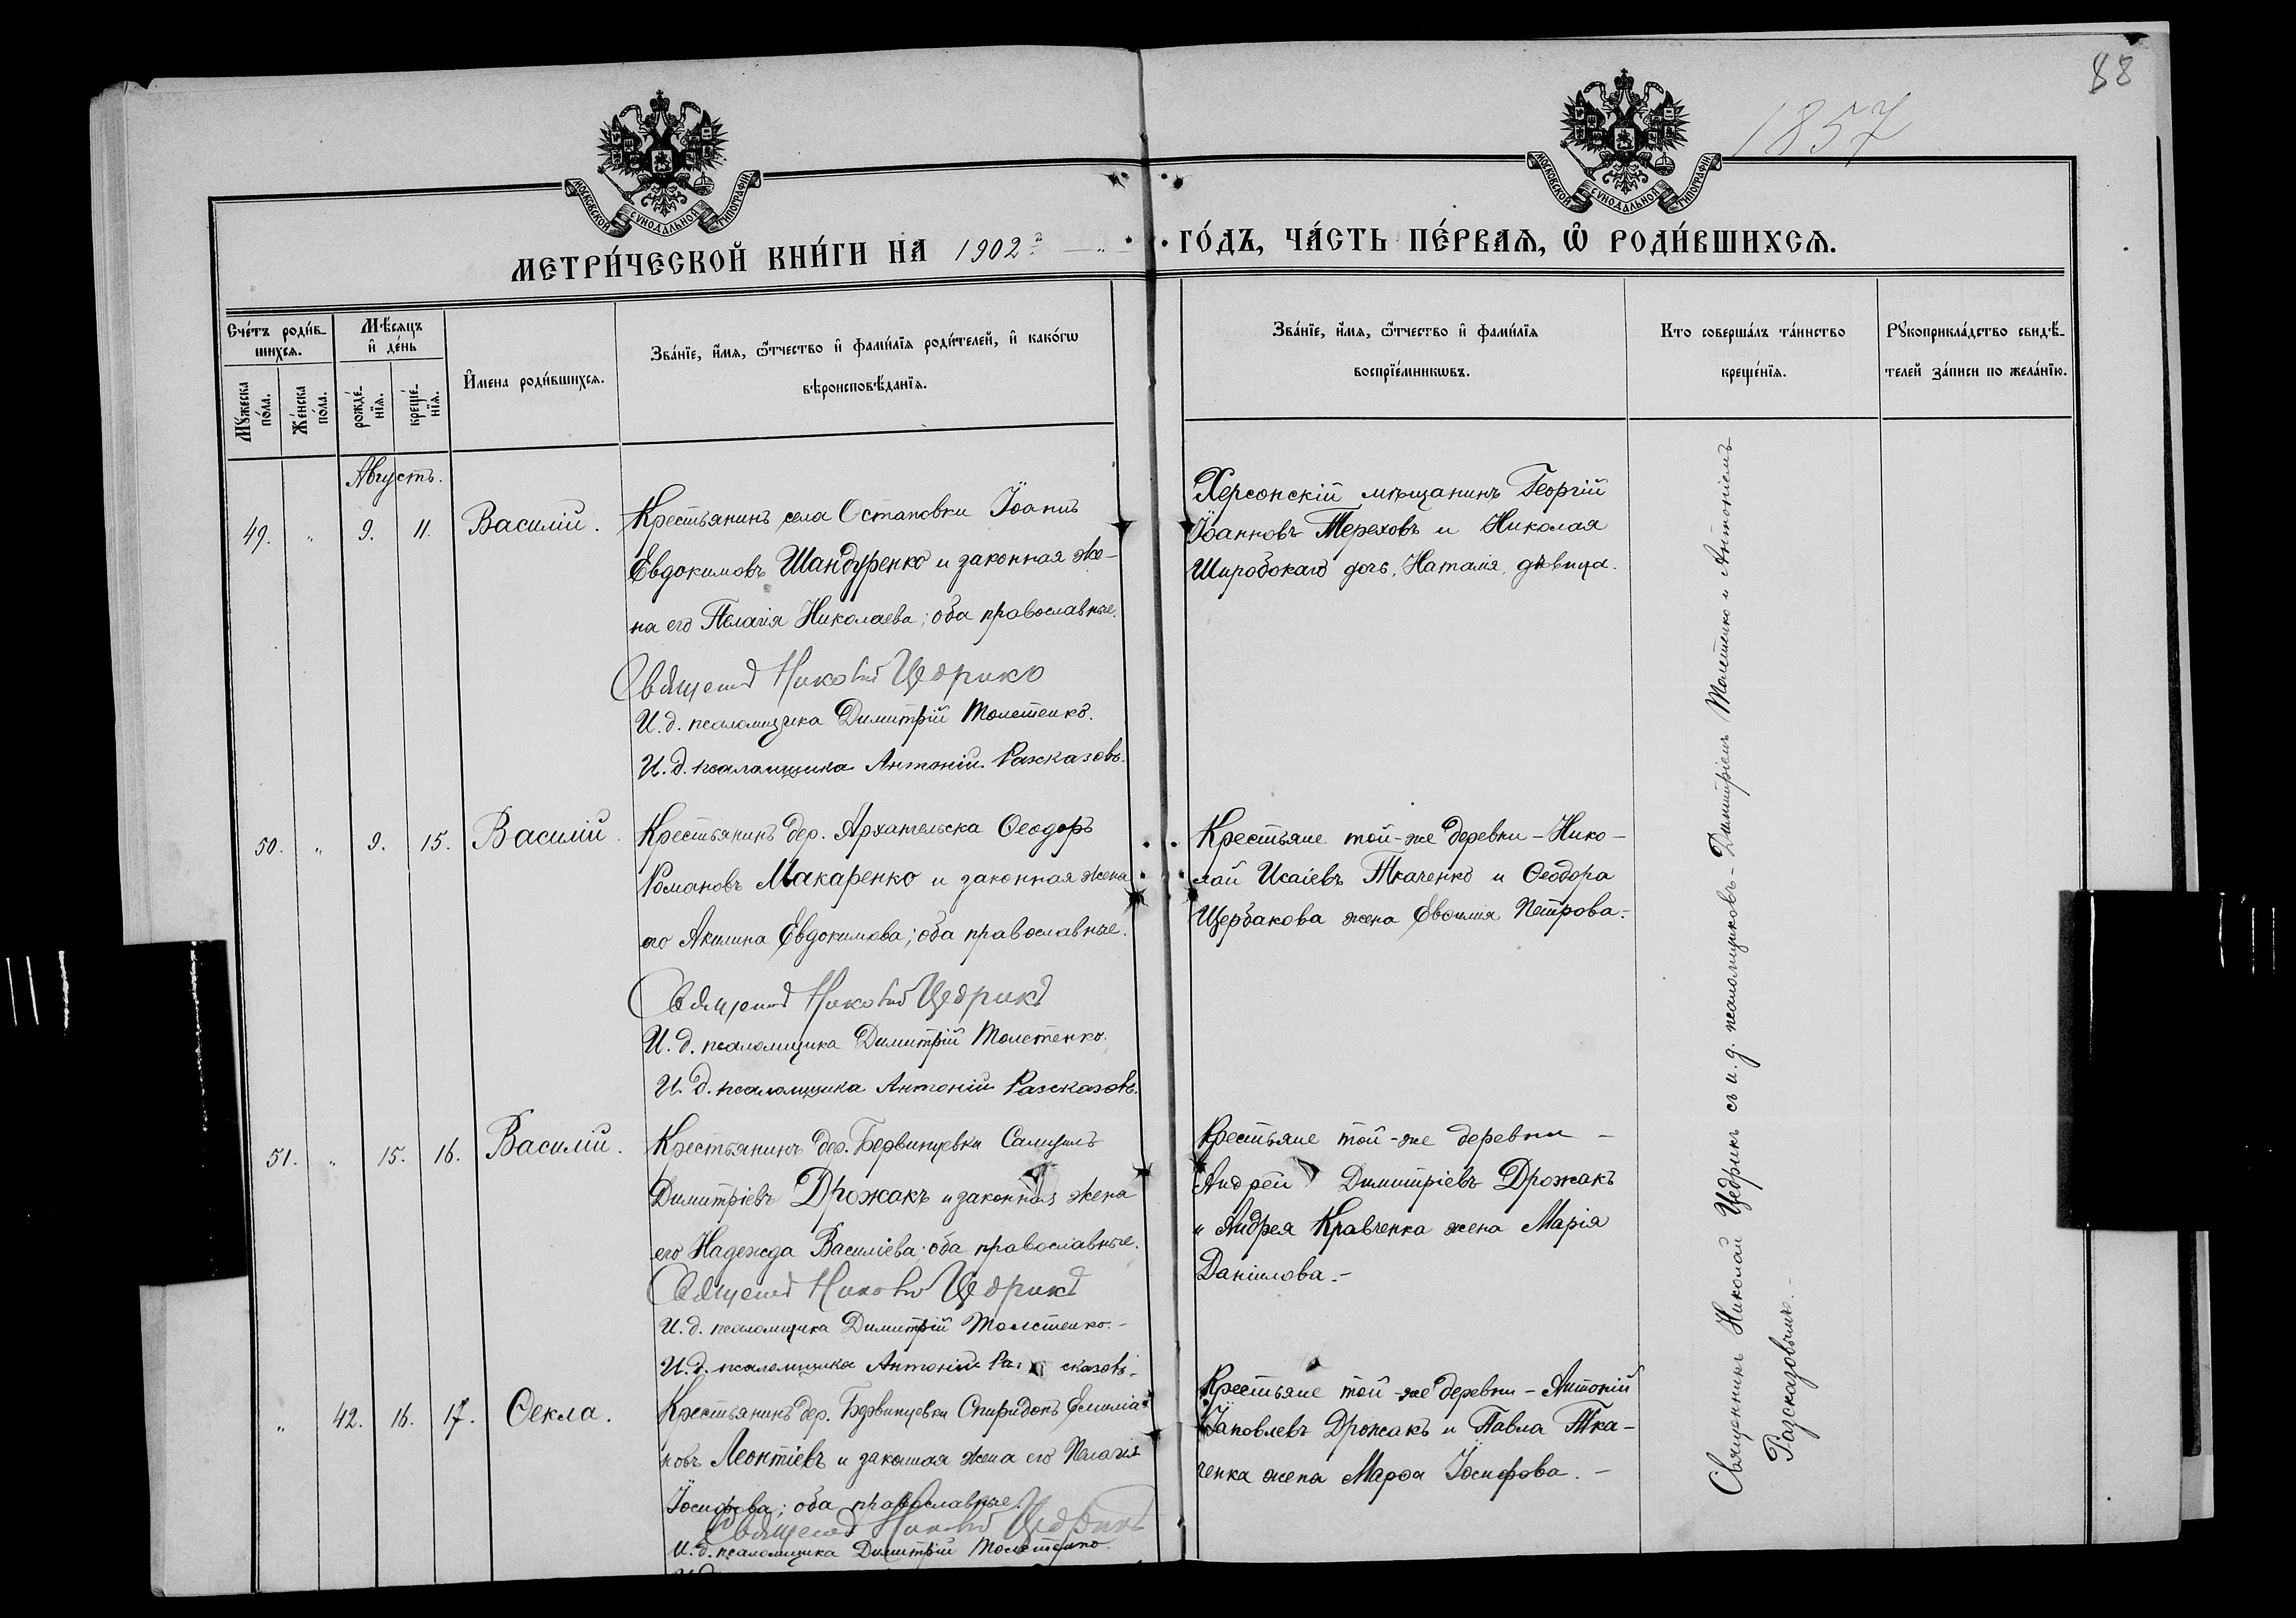 88
1857
МОСКОВСКОЙ СѴНОДАЛЬНОЙ ТИПОГРАФІИ
МОСКОВСКОЙ СѴНОДАЛЬНОЙ ТИПОГРАФІИ
МЕТРИ́ЧЕСКОЙ КНИ́ГИ НА 1902 г. ГО́ДЪ, ЧА́СТЬ ПЕ́РВАѦ, Ѽ РОДИ́ВШИХСѦ.
Сче́тъ роди́в-
шихсѧ.
Мꙋжеска по́ла.
Же́нска по́ла.
Мѣ́сяцъ
и҆ де́нь
рожде́-
нїѧ.
креще́-
нїѧ.
И҆мена роди́вшихсѧ.
Зва́нїе, и҆́мѧ, ѻ҆́тчество и҆ фами́лїѧ роди́телей, и҆ како́гѡ
вѣроисповѣ́данїѧ.
Зва́нїе, и҆́мѧ, ѻ҆́тчество и҆ фами́лїѧ
воспрїе́мникѡвъ.
Кто соверша́лъ та́инство
креще́нїѧ.
Рꙋкоприкла́дство свидѣ́-
телей за́писи по жела́нїю.
Августъ.
49. " 9. 11. Василій.
Крестьянинъ села Остановки Іоаннъ
Евдокимовъ Шандуренко и законная же-
на его Пелагія Николаева; оба православные.
Священникъ Николай Цедрикъ
И. д. псаломщика Димитрій Толстенко.
И. д. псаломщика Антоній Разсказовъ.
Херсонскій мѣщанинъ Георгій
Іоанновъ Тереховъ и Николая
Широбокаго дочь, Наталія, дѣвица.
50. " 9. 15. Василій.
Крестьянинъ дер. Архангельска Ѳеодоръ
Романовъ Макаренко и законная жена
его Акилина Евдокимова; оба православные.
Священникъ Николай Цедрикъ
И. д. псаломщика Димитрій Толстенко.
И. д. псаломщика Антоній Разсказовъ.
Крестьяне той-же деревни - Нико-
лай Исаіевъ Ткаченко и Ѳеодора
Щербакова жена Евфимія Петрова.-
51. " 15. 16. Василій.
Крестьянинъ дер. Бервинцевки Самуилъ
Димитріевъ Дрожакъ и законная жена
его Надежда Василіева; оба православные.
Священникъ Николай Цедрикъ
И. д. псаломщика Димитрій Толстенко.-
И. д. псаломщика Антоній Разсказовъ.
Крестьяне той-же деревни -
Андрей Димитріевъ Дрожакъ
и Андрея Кравченка жена Марія
Даніилова.-
" 42. 16. 17. Ѳекла.
Крестьянинъ дер. Бервинцевки Спиридонъ Емиліа-
новъ Леонтіевъ и законная жена его Пелагія
Іосифова; оба православные.
Священникъ Николай Цедрикъ
И. д. псаломщика Димитрій Толстенко.
Крестьяне той-же деревни - Антоній
Іаковлевъ Дрожакъ и Павла Тка-
ченка жена Марѳа Іосифова.-
Священникъ Николай Цедрикъ съ и. д. псаломщиковъ - Димитріемъ Толстенко и Антоніемъ
Разсказовымъ.-